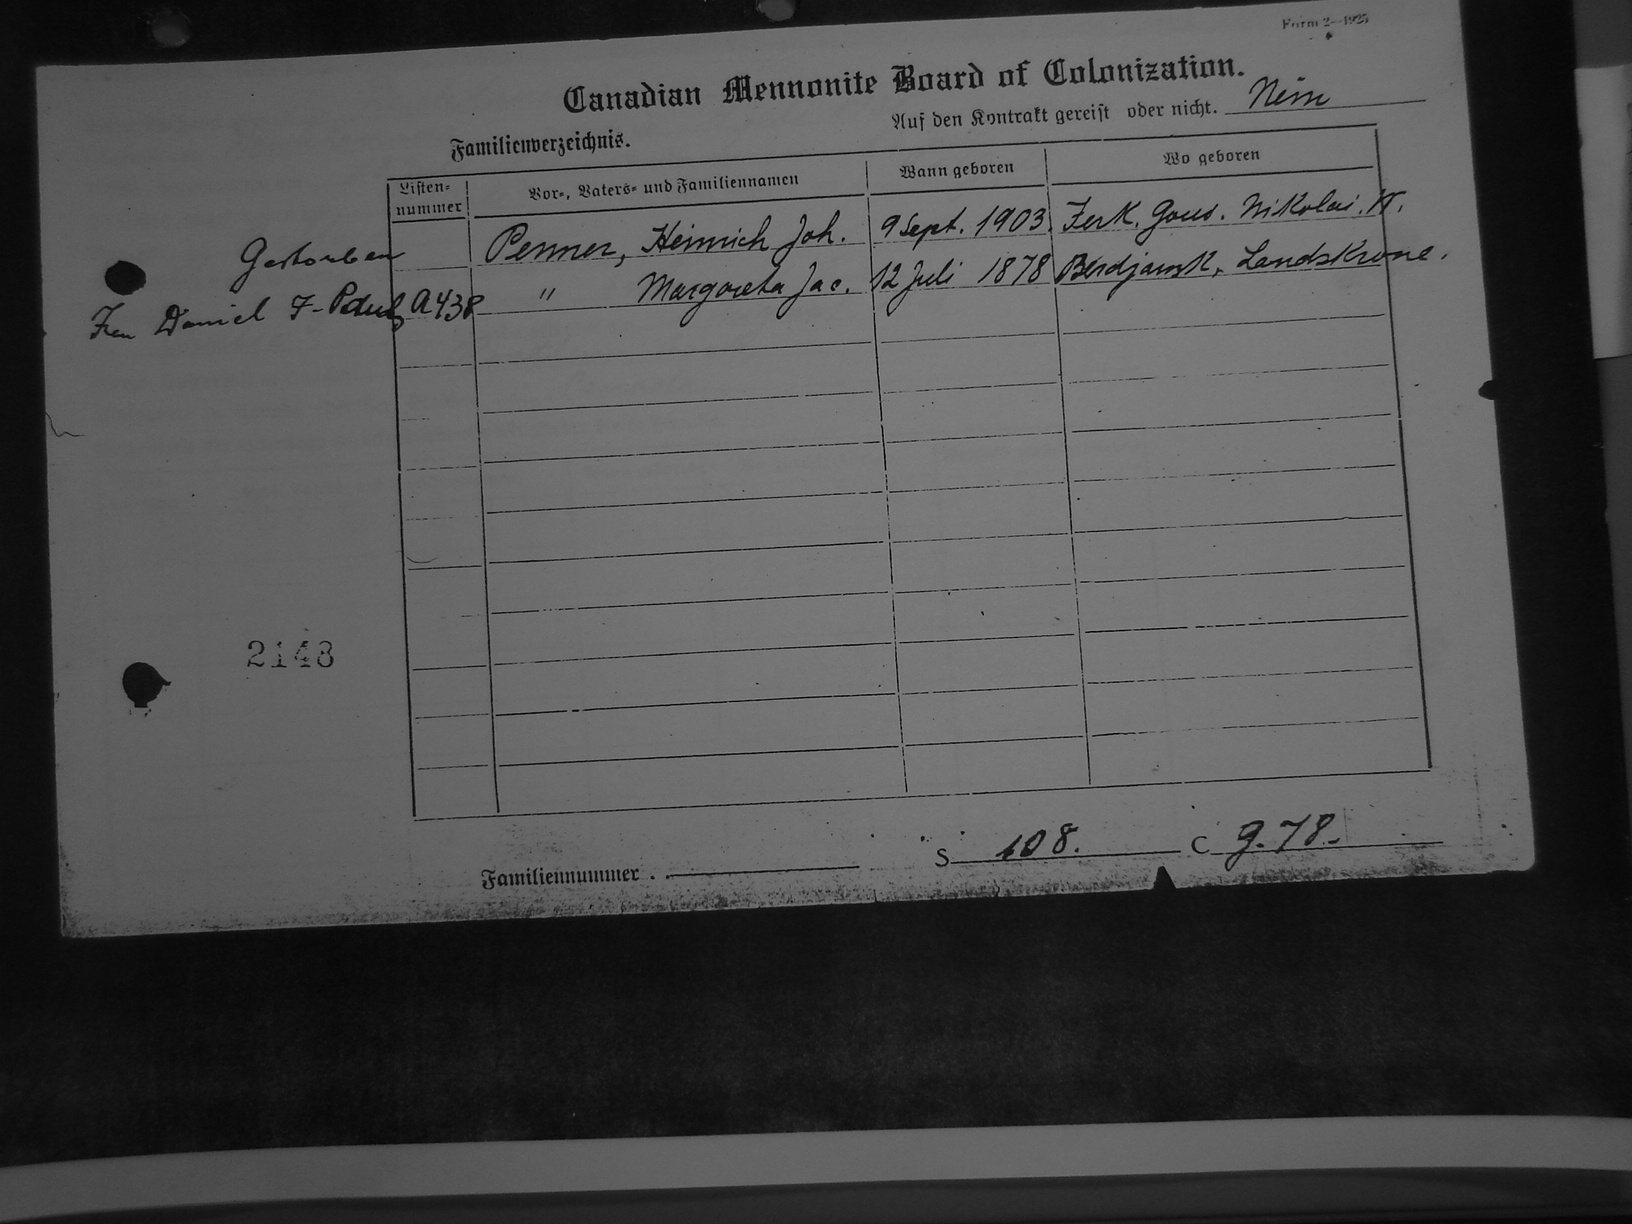 Form 2-1925
Canadian Mennonite Board of Colonization.
Auf den Kontrakt gereist oder nicht. Nein
Familienverzeichnis.
Listen-nummer Vor-, Vaters- und Familiennamen Wann geboren Wo geboren
Gestorben Penner, Heinrich Joh. 9 Sept. 1903. Gouv. Nikolai.
Frau Daniel F. A438 " Margareta Jac. 12 Juli 1878 Berdjansk, Landskrone.
2143
Familiennummer . S 108. C 9.78.